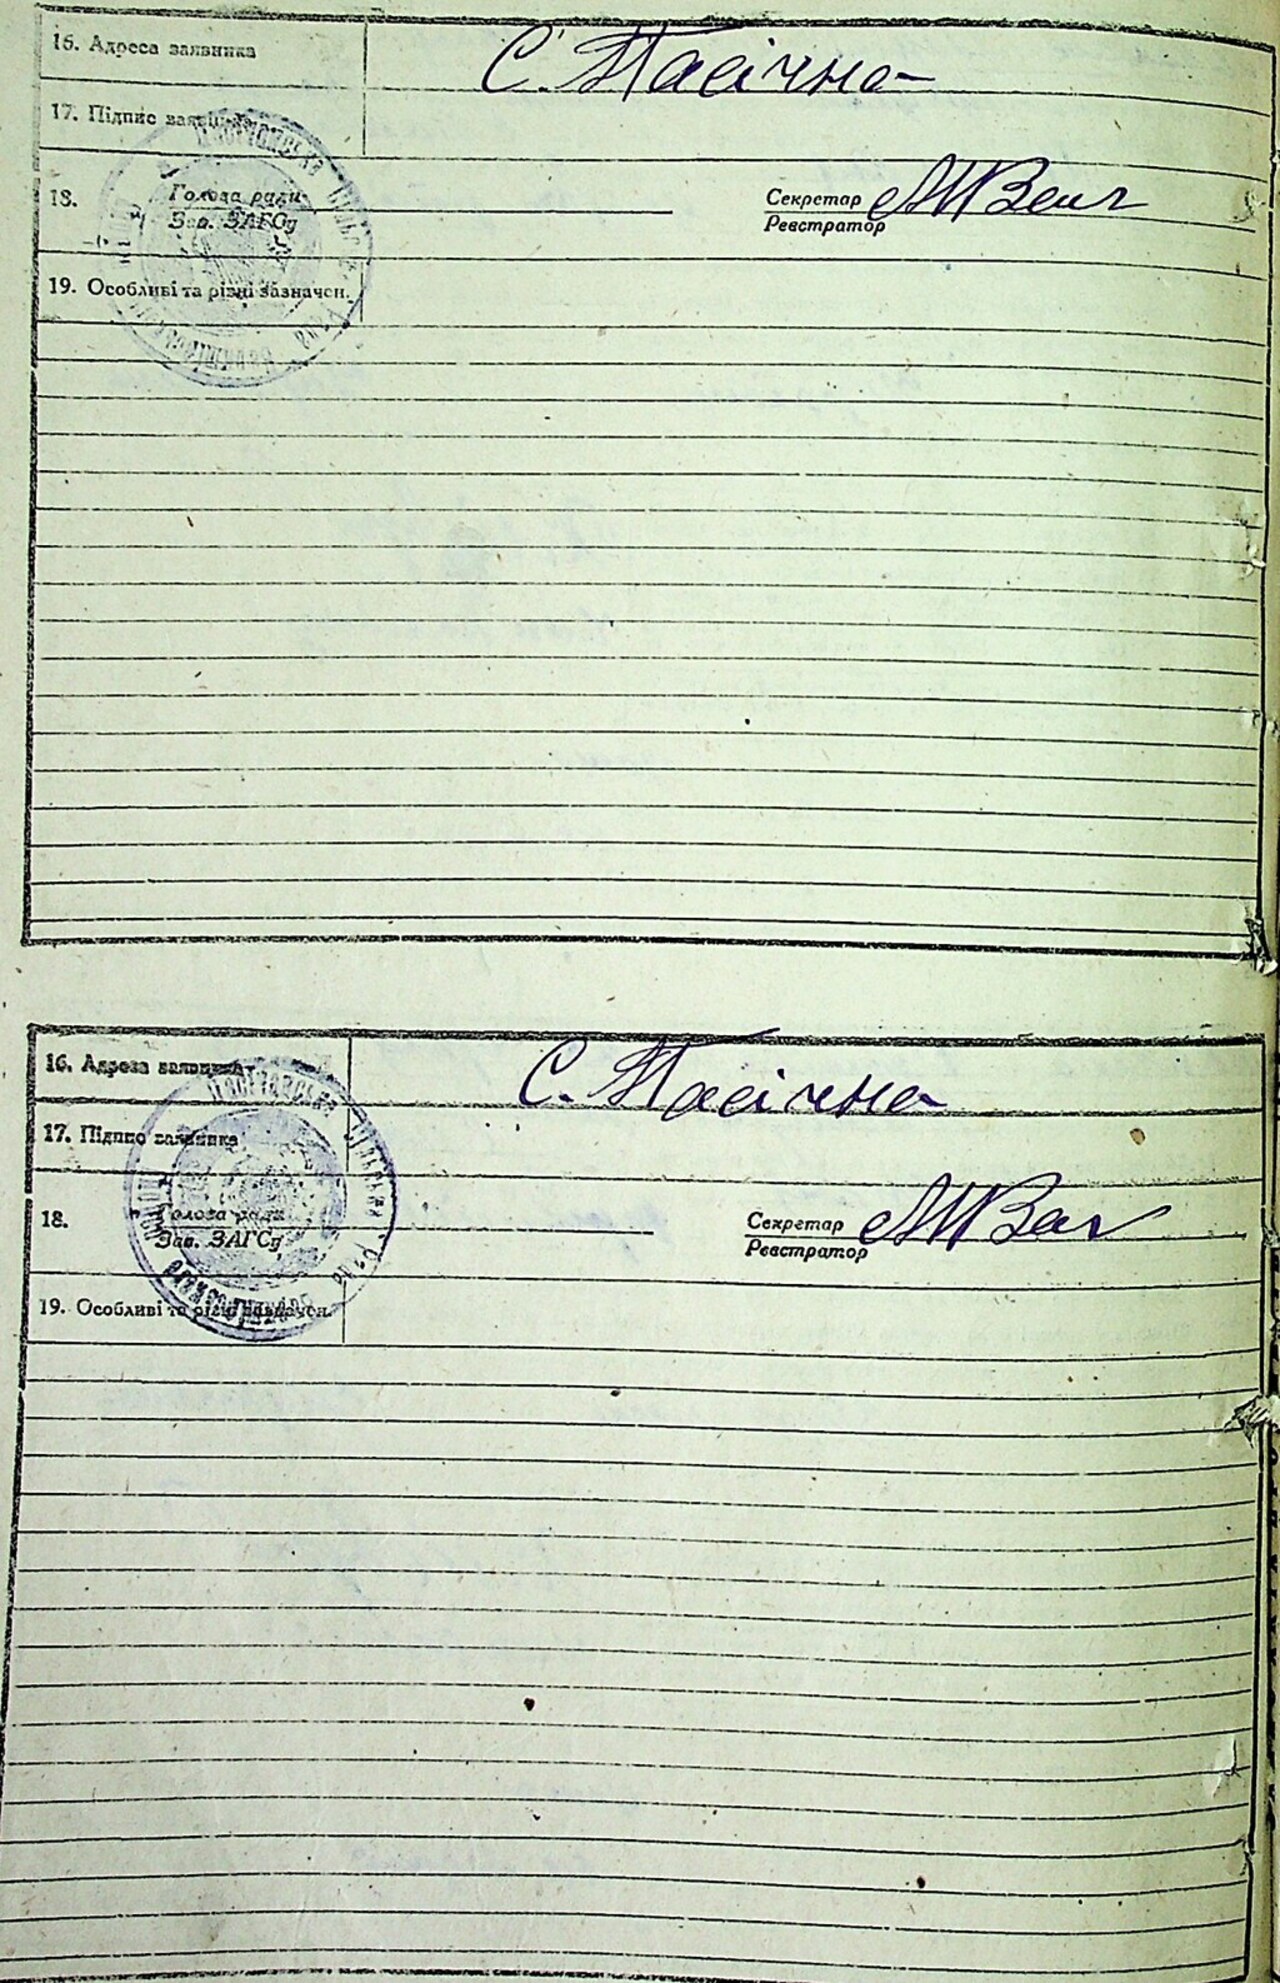 16. Адресса заявника
С. Пасічна
17. Підпис заявника
18. Голова ради
Зав. ЗАГСу
Секретар
Реєстратор
19. Особливі та різні зазначен.
16. Адреса заявника
С. Пасічна
17. Підпис заявника
18. Голова ради
Зав. ЗАГСу
Секретар
Реєстратор
19. Особливі та різні зазначен.